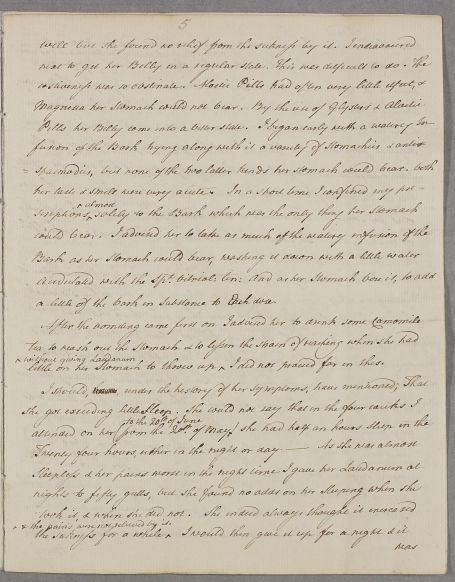 5
well but she found no relief from the sickness by it. I endeavoured
next to get her Belly in a regular state. This was difficult to do. The
costiveness was so obstinate. Aloetic Pills had often very little effect, &
Magnesia her Stomach could not bear. By the use of Glysters & Aloetic
Pills her Belly came into a better state. I began early with a watery In-
fusion of the Bark trying along with it a variety of Stomachics & anti-
= spasmodics, but none of the two latter kinds her Stomach could bear. both
her taste & smell were very acute. In a short time I confined my pre-
^ almost
scriptions, solely to the Bark which was the only thing her Stomach
could bear. I advised her to take as much of the watery infusion of the
Bark as her Stomach could bear, washing it down with a little water
acidulated with the Spt. vitriol: ten: And as her Stomach bore it, to add
a little of the bark in Substance to Each dose.
After the vomiting came first on I advised her to drink some Camomile
tea to wash out the Stomach & to lessen the strain of reaching when she had
^ without giving Laudanum
little on her Stomach to throw up ^ I did not proceed far in this.
I should, under the history of her Symptoms, have mentioned, That
she got exceeding little Sleep. She would not say that in the four weeks I
to the 20th of June
attended on her from the 20th of May, she had half an hours Sleep in the
Twenty four hours, either in the night or day — As she was almost
Sleepless & her pains worst in the night time I gave her Laudanum at
nights to fifty gutts, but she found no odds on her sleeping when she
took it & when she did not. She indeed always thought it increased
^ & the pains were not relieved by it.
the Sickness for a while ^ I would then give it up for a night & it
was